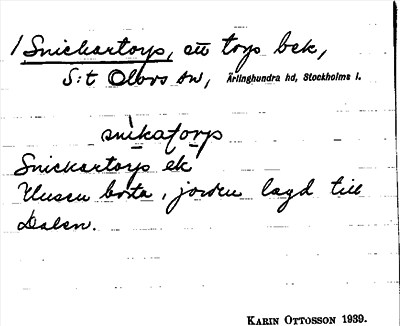 1 Snickartorp, ett torp bek,
S:t Olovs sn, Ärlinghundra hd, Stockholms l.
snikatorp
Snickartorp ek
Husen borta, jorden lagd till
Dalen.
KARIN OTTOSSON 1939.